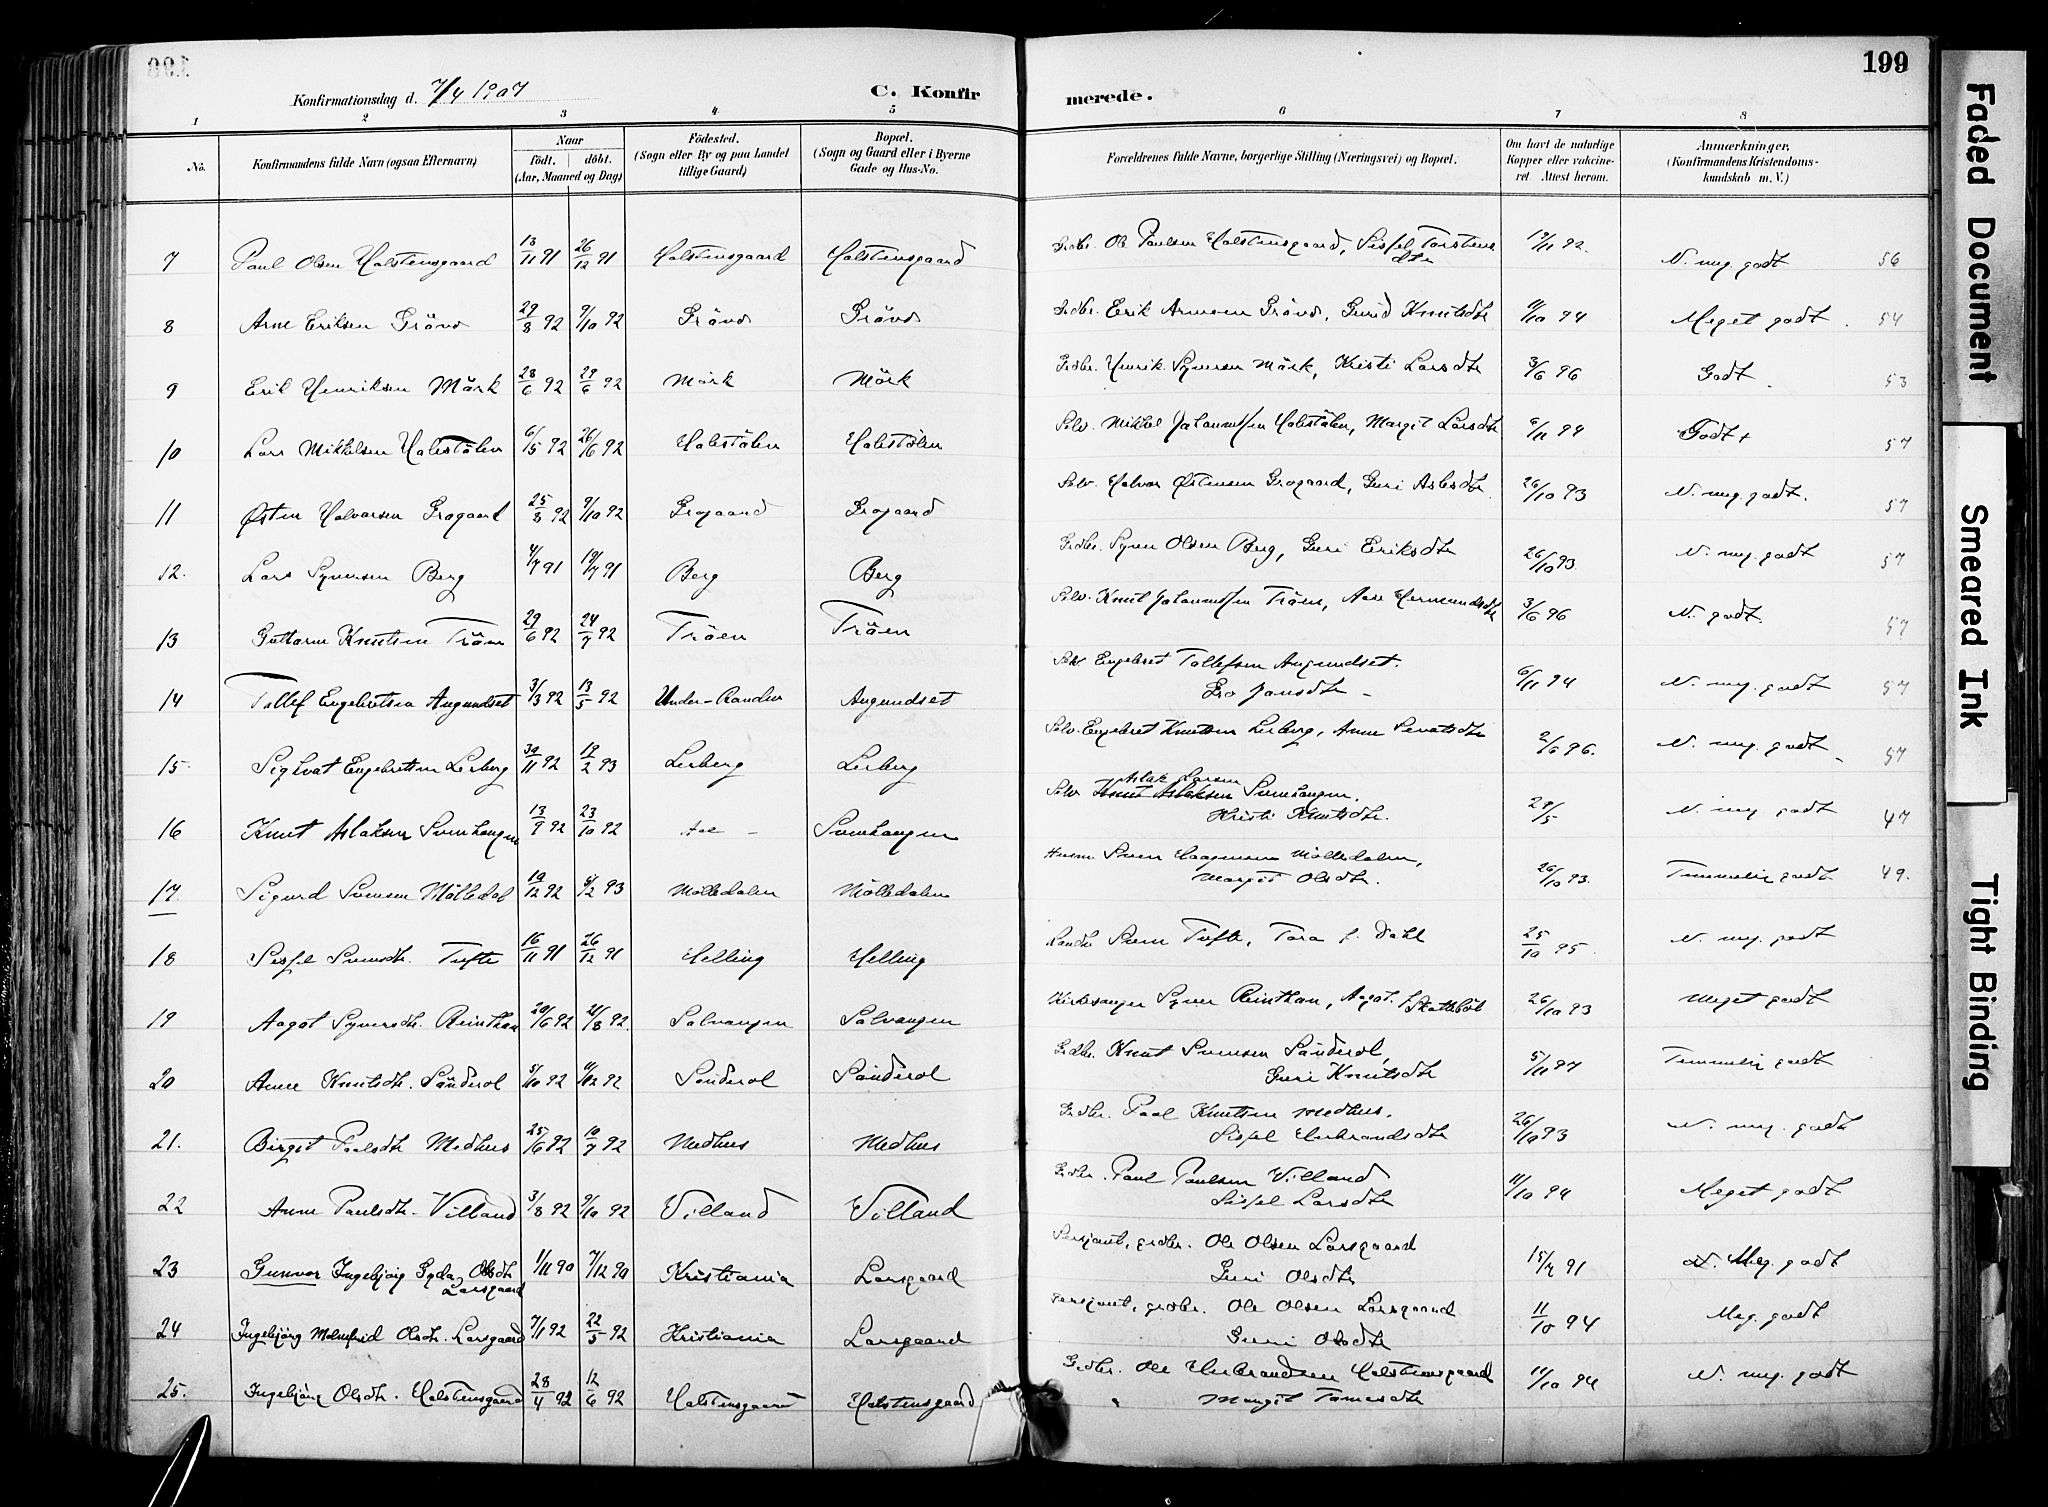 199
Konfirmationsdag d. 7/4 1907
C. Konfirmerede.
1 2 3 4 5 6 7 8
No. Konfirmandens fulde Navn (ogsaa Efternavn) Naar födt. döbt. (Aar, Maaned og Dag) Födested. (Sogn eller By og paa Landet tillige Gaard) Bopæl. (Sogn og Gaard eller i Byerne Gade og Hus-No. Forældrenes fulde Navne, borgerlige Stilling (Næringsvei) og Bopæl. Om havt de naturlige Kopper eller vaccineret Attest herom. Anmærkninger, (Konfirmandens Kristendomskundskab m. V.)
7 Paul Olsen Halstensgaard 13/11 91 26/12 91 Halstensgaard Halstensgaard Grdbr. Ole Paulsen Halstensgaard, Sissel Torstensdtr 19/11 92. N. mg. godt 56
8 Arne Eriksen Grönd 29/8 92 9/10 92 Grönd Grönd Grdbr. Erik Arnesen Grönd, Gurid Knutsdtr 11/10 94 Meget godt. 54
9 Erik Henriksen Mörk 28/6 92 29/6 92 Mörk Mörk Grdbr. Henrik Syversen Mörk, Kristi Larsdtr 3/6 96 Godt. 53
10 Lars Mikkelsen Halestölen 6/5 92 26/6 92 Halestölen Halestölen Selv. Mikkel Johannessen Halestölen, Margit Larsdtr 6/11 94 Godt + 57
11 Østen Halvorsen Grogaard 25/8 92 9/10 92 Grogaard Grogaard Selv. Halvor Østensen Grogaard, Guri Aslesdtr 26/10 93 N. mg. godt. 57
12. Lars Syversen Berg 4/7 91 19/7 91 Berg Berg Grdbr. Syver Olsen Berg, Guri Eriksdtr 26/10 93 N. mg. godt 57
13 Guttorm Knutsen Tröen 29/6 92 24/7 92 Tröen Tröen Selv. Knut Johannessen Tröen, Aase Hermundsdtr 3/6 96 N. godt. 57
14 Tollef Engebretsen Augundset 3/3 92 13/5 92 Under-Randen Augundset Selv. Engebret Tollefsen Augundset.
Gro Jonsdtr - 6/11 94 N. mg. godt 57
15 Sighvat Engebretsen Lesberg 30/11 92 19/2 93 Lesberg Lesberg Selv. Engebret Knutsen Lesberg, Anne Sevatsdtr 2/6 96. N. mg. godt 57
16 Knut Aslaksen Svenhaugen 13/9 92 23/10 92 Aal - Svenhaugen Selv Aslak Larsen Svenhaugen,
Kristi Knutsdtr. 29/5 N. mg. godt 47
17. Sigurd Svensen Mölledal 19/12 92 6/2 93 Mölledalen Mölledalen Husm Sven Haagensen Mölledalen,
Margit Olsdtr. 26/10 93. Temmelig godt 49.
18 Sissel Svensdtr. Tufte 16/11 91 26/12 91 Helling Helling Landh. Sven Tufte, Tora f. Dahl 25/10 95. N. mg. godt
19 Aagot Syversdtr. Reinthon 20/6 92 21/8 92. Solvangen Solvangen Kirkesanger Syver Reinthon, Aagot f. Skatteböl 26/10 93 Meget godt
20 Anne Knutsdtr. Sönderol 5/10 92 4/12 92 Sönderol Sönderol Grdbr. Knut Svensen Sönderol,
Guri Knutsdtr 5/11 97 Temmelig godt
21. Birgit Paalsdtr Medhus 25/6 92 10/7 92 Medhus Medhus Grdbr. Paal Knutsen Medhus,
Sissel Herbrandsdtr 26/10 93 N. mg. godt
22 Anne Paulsdtr. Villand 3/8 92 9/10 92 Villand Villand Grdbr. Paul Paulsen Villand
Sissel Larsdtr 11/10 94 Meget godt
23 Gunvor Ingebjörg Gyda Olsdtr Larsgaard 1/11 90 7/12 90 Kristiania Larsgaard Sersjant, grdbr. Ole Olsen Larsgaard
Guri Olsdtr 15/7 91 N. Meg. godt
24 Ingebjörg Malmfrid Olsdtr. Larsgaard 7/1 92 22/5 92 Kristiania Larsgaard Sersjant, grdbr. Ole Olsen Larsgaard
Guri Olsdtr 11/10 94 Meg. godt
25. Ingebjörg Olsdtr. Halstensgaard 28/4 92 12/6 92 Halstensgaard Halstensgaard Grdbr. Ole Herbrandsen Halstensgaard
Margit Tomasdtr 11/10 94 N. mg. godt
Faded Document
Smeared Ink
Tight Binding